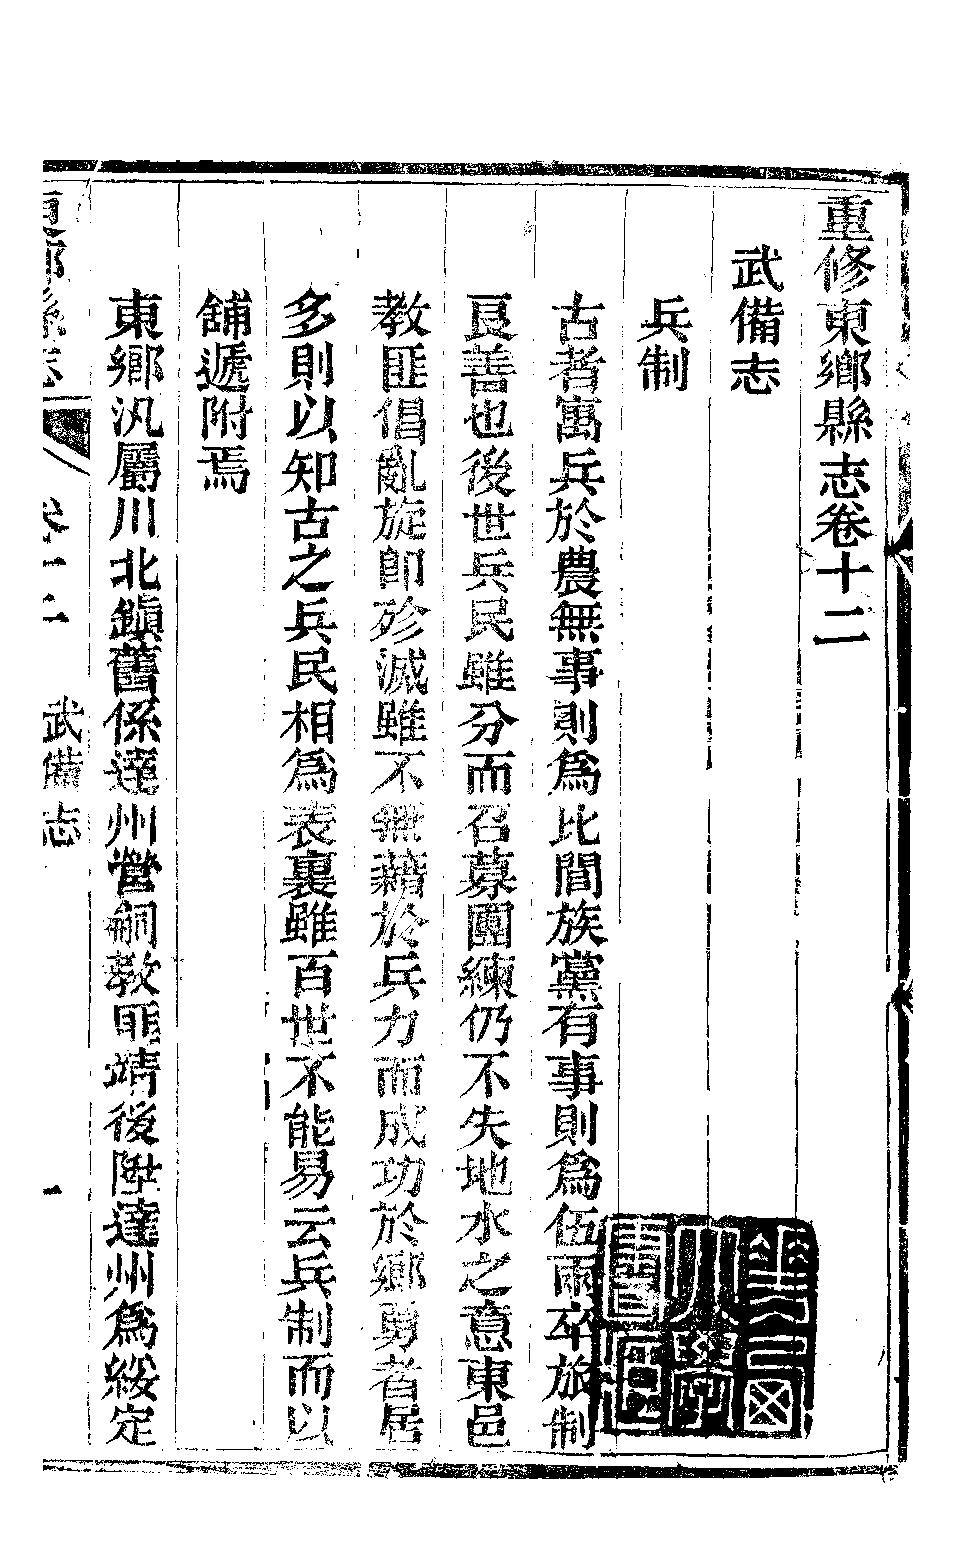 重修東鄉縣志卷十二
武備志
兵制
古者寓兵於農無事則為比閭族黨有事則為伍兩卒旅制
良善也後世兵民雖分而召募團練仍不失地水之意東邑
教匪倡亂旋即殄滅雖不無藉於兵力而成功於鄉勇者居
多則以知古之兵民相為表裏雖百世不能易云兵制而以
舖遞附焉
東鄉汛屬川北鎮舊係達州營嗣教匪靖後陞達州為綏定
東鄉縣志
卷十二
武備志
一